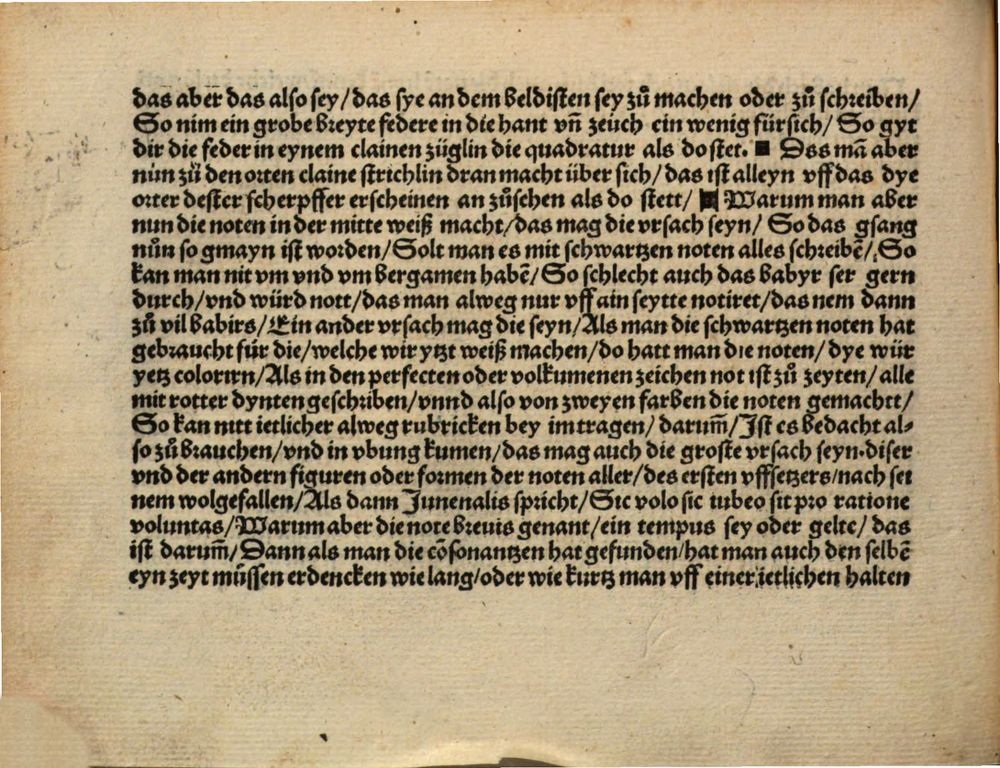 das aber das also sey/das sye an dem beldisten sey zů machen oder zů schreiben/
So nim ein grobe breyte federe in die hant vñ zeuch ein wenig fürsich/ So gyt
dir die feder in eynem clainen züglin die quadratur als do stet. ■ Das mā aber
nůn zů den orten claine strichlin dran macht über sich/das ist alleyn vff das dye
orter dester scherpffer erscheinen an zůsehen als do stett/ Warum man aber
nun die noten in der mitte weiß macht/das mag die vrsach seyn/ So das gsang
nůn so gmayn ist worden/Solt man es mit schwartzen noten alles schreibē/So
kan man nit vm vnd vm bergamen habē/So schlecht auch das babyr ser gern
durch/vnd würd nott/das man alweg nur vff ain seytte notiret/das nem dann
zů vil babirs/Ein ander vrsach mag die seyn/Als man die schwartzen noten hat
gebraucht für die/welche wir ytzt weiß machen/do hatt man die noten/dye wür
yetz colorirn/Als in den perfecten oder volkumenen zeichen not ist zů zeyten/alle
mit rotter dynten geschriben/vnnd also von zweyen farben die noten gemachtt/
So kan nitt ietlicher alweg rubricken bey im tragen/ darum̄/Ist es bedacht al⸗
so zů brauchen/vnd in vbung kumen/das mag auch die groste vrsach seyn.diser
vnd der andern figuren oder formen der noten aller/des ersten vffsetzers/nach sei
nem wolgefallen/Als dann Junenalis spricht/Sic volo sic iubeo sit pro ratione
voluntas/Warum aber die note breuis genant/ein tempus sey oder gelte/ das
ist darum̄/Dann als man die cōsonantzen hat gefunden/hat man auch den selbē
eyn zeyt můssen erdencken wie lang/oder wie kurtz man vff einer ietlichen halten